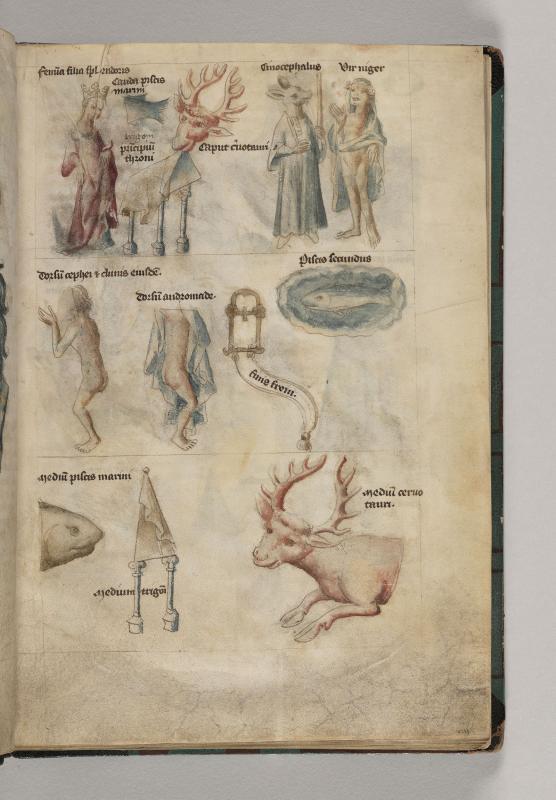 femīa filia splendoris
Cauda piscis
marini
prīcipiū
throni
Caput c̄uotauri
Cinocephalus
Vir niger
Dorsū cephei ⁊ clunis eiusdē.
Dorsū andromade.
Piscis secundus
Mediū piscis marini
Medium trigōi
Mediū ceruo
tauri.